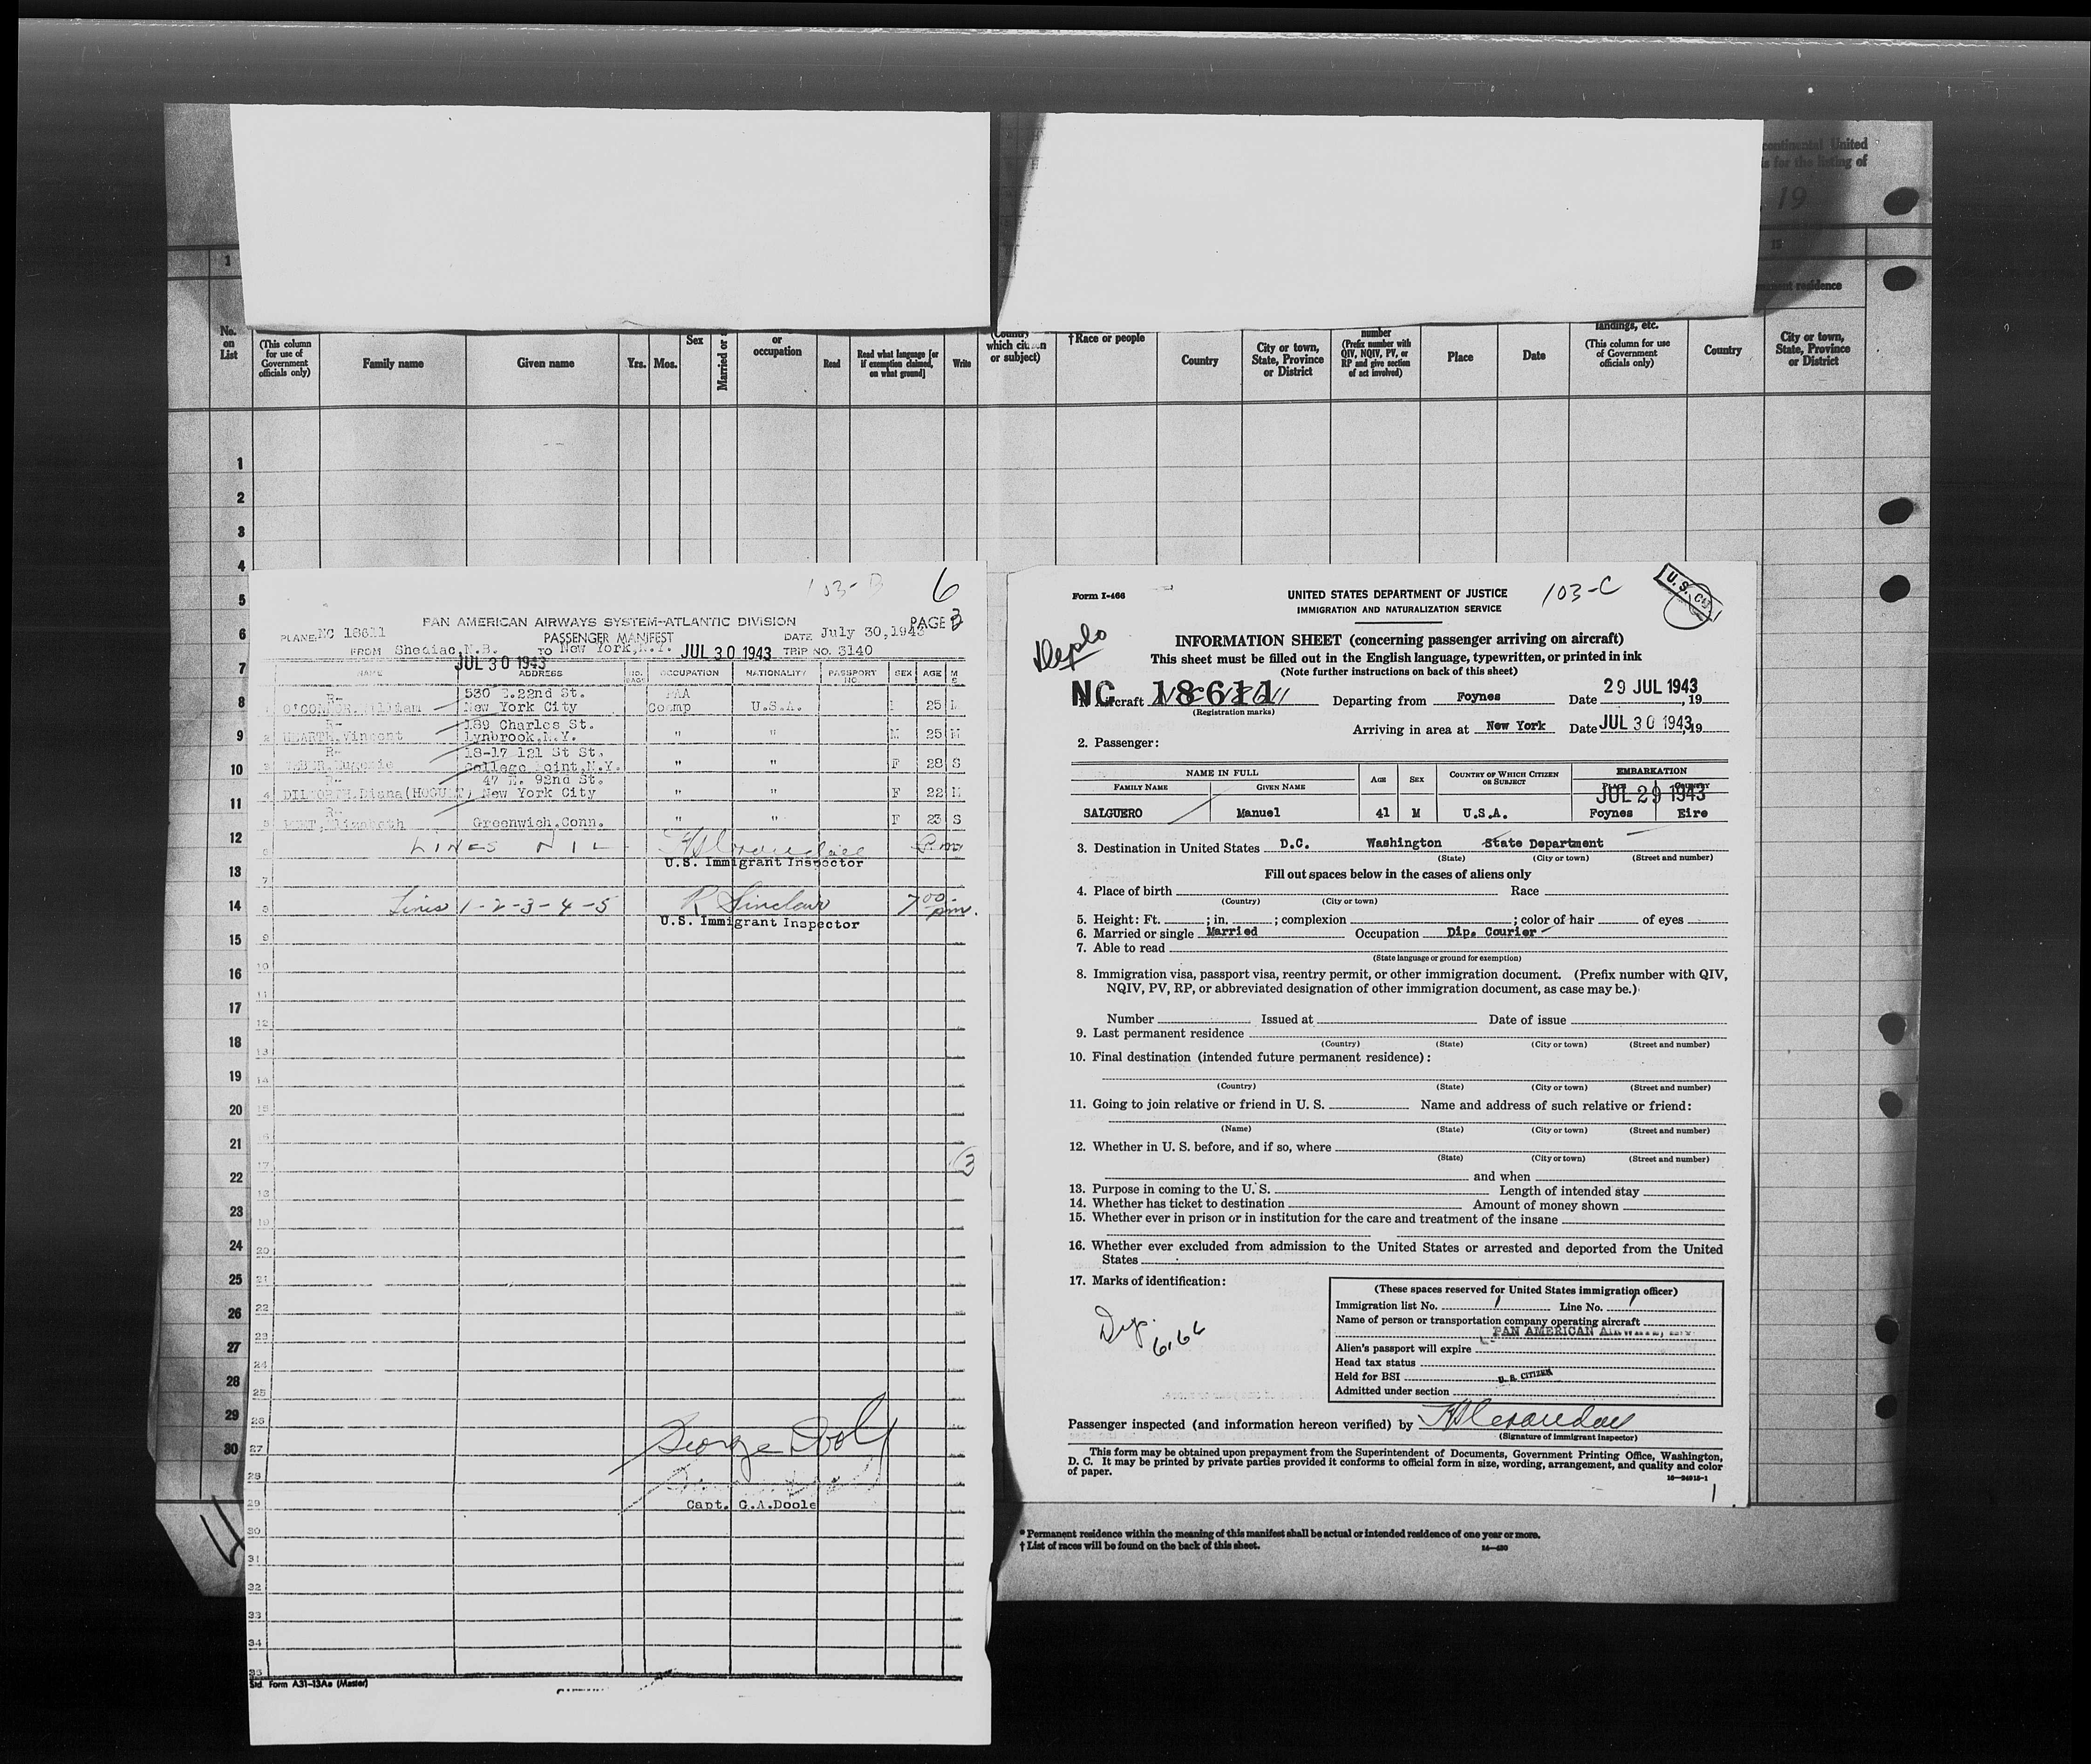 continental United
is for the listing of
19
1
13
permanent residence
No.
on
List
(This column
for use of
Government
officials only)
Family name
Given name
Yrs.
Mos.
Sex
Married or
or
occupation
Read
Read what language [or
if exemption claimed,
on what ground]
Write
(Country
which citizen
or subject)
†Race or people
Country
City or town,
State, Province
or District
number
(Prefix number with
QIV, NQIV, PV, or
RP and give section
of act involved)
Place
Date
landings, etc.
(This column for use
of Government
officials only)
Country
City or town,
State, Province
or District
1
2
3
4
5
6
7
8
9
10
11
12
13
14
15
16
17
18
19
20
21
22
23
24
25
26
27
28
29
30
103-B
6
PAN AMERICAN AIRWAYS SYSTEM-ATLANTIC DIVISION
PAGE 3
PLANE NC 18611
PASSENGER MANIFEST
DATE July 30,1943
FROM Shediac,N.B. TO New York,N.Y. JUL 30 1943 TRIP NO. 3140
JUL 30 1943
NAME ADDRESS OCCUPATION NATIONALITY PASSPORT NO. SEX AGE M S
R- 530 E.22nd St. PAA
1 O'CONNOR,William New York City Coemp U.S.A. 25
R- 189 Charles St.
2 Vincent Lynbrook,N.Y. " " M 25 M
R- 18-17 121 St St.
3 College Point,N.Y. " " F 28 S
R- 47 E. 92nd St.
4 DILWORTH,Diana New York City " " F 22 M
R-
5 Elizabeth Greenwich,Conn. " " F 23 S
LINES NIL
U.S. Immigrant Inspector
Lines 1-2-3-4-5 R Sinclair 7 00 pm.
U.S. Immigrant Inspector
3
George Doole
Capt. G.A.Doole
Std. Form A31-13Aa (Master)
Form I-466
UNITED STATES DEPARTMENT OF JUSTICE
IMMIGRATION AND NATURALIZATION SERVICE
103-C
U.S. Cit
Deplo
INFORMATION SHEET (concerning passenger arriving on aircraft)
This sheet must be filled out in the English language, typewritten, or printed in ink
(Note further instructions on back of this sheet)
NC 18611
1. Aircraft NC 18611 Departing from Foynes Date 29 JUL 1943, 19
(Registration marks)
Arriving in area at New York Date JUL 30 1943, 19
2. Passenger:
NAME IN FULL
AGE
SEX
COUNTRY OF WHICH CITIZEN
OR SUBJECT
EMBARKATION
FAMILY NAME
GIVEN NAME
PLACE
COUNTRY
JUL 29 1943
SALGUERO Manuel 41 M U.S.A. Foynes Eire
3. Destination in United States D.C. Washington State Department
(State) (City or town) (Street and number)
Fill out spaces below in the cases of aliens only
4. Place of birth Race
(Country) (City or town)
5. Height: Ft. ; in. ; complexion ; color of hair of eyes
6. Married or single Married Occupation Dip. Courier
7. Able to read
(State language or ground for exemption)
8. Immigration visa, passport visa, reentry permit, or other immigration document. (Prefix number with QIV,
NQIV, PV, RP, or abbreviated designation of other immigration document, as case may be.)
Number Issued at Date of issue
9. Last permanent residence
(Country) (State) (City or town) (Street and number)
10. Final destination (intended future permanent residence):
(Country) (State) (City or town) (Street and number)
11. Going to join relative or friend in U. S. Name and address of such relative or friend:
(Name) (State) (City or town) (Street and number)
12. Whether in U. S. before, and if so, where
(State) (City or town) (Street and number)
and when
13. Purpose in coming to the U. S. Length of intended stay
14. Whether has ticket to destination Amount of money shown
15. Whether ever in prison or in institution for the care and treatment of the insane
16. Whether ever excluded from admission to the United States or arrested and deported from the United
States
17. Marks of identification:
Dip.
6.66
(These spaces reserved for United States immigration officer)
Immigration list No. 1 Line No. 1
Name of person or transportation company operating aircraft
PAN AMERICAN AIRWAYS, INC.
Alien's passport will expire
Head tax status
Held for BSI U. S. CITIZEN
Admitted under section
Passenger inspected (and information hereon verified) by
(Signature of immigrant inspector)
This form may be obtained upon prepayment from the Superintendent of Documents, Government Printing Office, Washington,
D. C. It may be printed by private parties provided it conforms to official form in size, wording, arrangement, and quality and color
of paper.
16—24915-1
1
* Permanent residence within the meaning of this manifest shall be actual or intended residence of one year or more.
† List of races will be found on the back of this sheet.
14—430